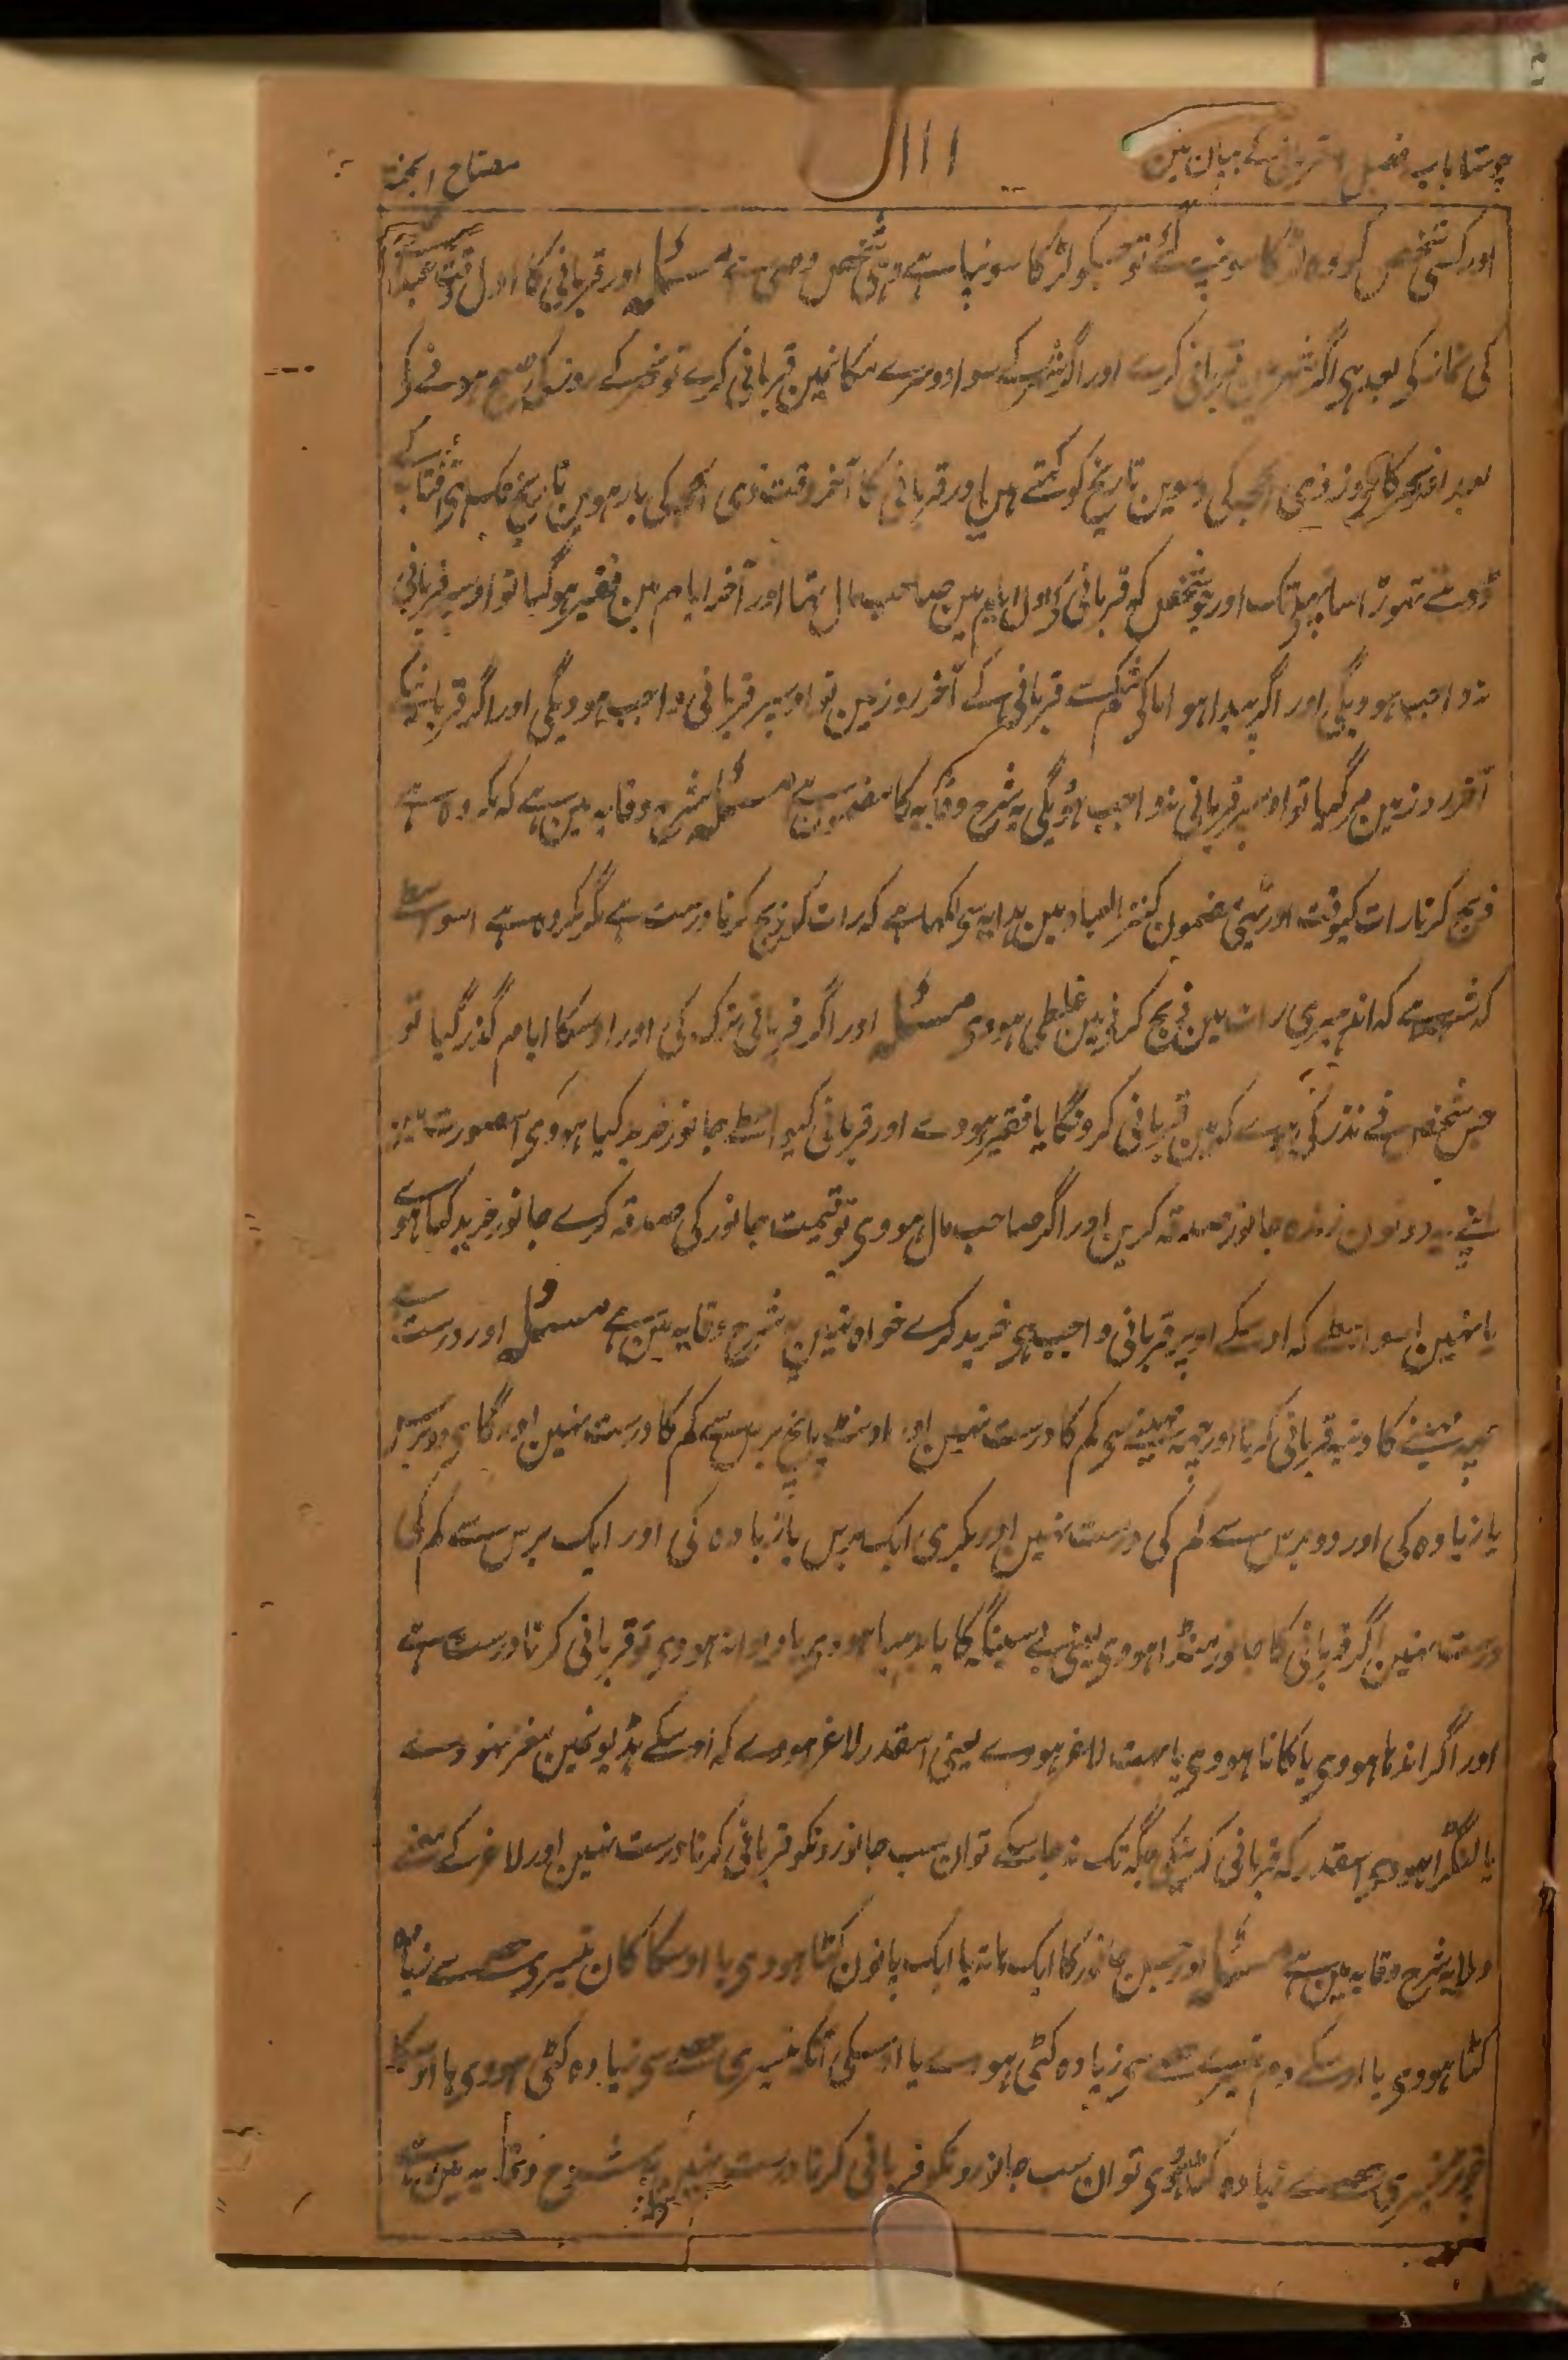 چوتھا باب فصل قربانی کے بیان مین
۱۱۱
مفتاح الجنۃ
اور کسی شخص کو وہ لڑکا سونپ سے تو جسکو لڑکا سونپا ہے وہی شخص وصی ہے مسئلہ اور قربانی کا اول وقت عید
کی نماز کی بعد ہی اگر شہر مین قربانی کرے اور اگر شہر کے سوا دوسرے مکانمین قربانی کرے تو نحر کے روز کی صبح ہونے کے
بعد اور نحر کا روز ذی الحجہ کی دسوین تاریخ کو کہتے ہین اور قربانی کا آخر وقت ذی الحجہ کی بارہوین تاریخ تک ہی آفتاب کے
ڈوبنے تہوڑا سا پہلے تک اور جو شخص کہ قربانی کے اول ایام مین صاحب مال تہا اور آخر ایام مین فقیر ہو گیا تو اوسپر قربانی
نہ واجب ہوویگی اور اگر پیدا ہوا ماکی شکم سے قربانی کے آخر روز مین تو اوسپر قربانی واجب ہوویگی اور اگر قربانیکے
آخر روز مین مر گیا تو اوسپر قربانی نہ واجب ہوویگی یہ شرح وقایہ کا مضمون ہے مسئلہ شرح وقایہ مین ہے کہ مکروہ ہے
ذبح کرنا رات کیوقت اور یہی مضمون کنز العباد مین ہدایہ سی لکھا ہے کہ رات کو ذبح کرنا درست ہے مگر مکروہ ہے اسواسطے
کہ شبہہ ہے کہ اندھیری رات مین ذبح کرنے مین غلطی ہووی مسئلہ اور اگر قربانی ترک کی اور اوسکا ایام گذر گیا تو
جس شخص نے نذر کی ہے کہ مین قربانی کرونگا یا فقیر ہووے اور قربانی کیواسطے جانور خرید کیا ہووی اسصورت مین
یہ دونون زندہ جانور صدقہ کرین اور اگر صاحب مال ہووی تو قیمت جانور کی صدقہ کرے جانور خرید کیا ہووے
یا نہین اسواسطے کہ اوسکے اوپر قربانی واجب ہی خرید کرے خواہ نہین یہ شرح وقایہ مین ہے مسئلہ اور درست ہے
چہ مہینے کا دنبہ قربانی کرنا اور چہہ مہینے سی کم کا درست نہین اور اونٹ پانچ برس سے کم کا درست نہین اور گای دو برس
یا زیادہ کی اور دو برس سے کم کی درست نہین اور بکری ایک برس یا زیادہ کی اور ایک برس سے کم کی
درست نہین اگر قربانی کا جانور منڈا ہووی یعنی بے سینگہ کا یا بدھیا ہووی یا دیوانہ ہووی تو قربانی کرنا درست ہے
اور اگر اندہا ہووی یا کانا ہووی یا بہت لاغر ہووے یعنی اسقدر لاغر ہووے کہ اوسکے ہڈیونمین مغز نہووے
یا لنگڑا ہووی اسقدر کہ قربانی کرنیکی جگہ تک نہ جا سکے تو ان سب جانورونکو قربانی کرنا درست نہین اور لاغر کے معنے
دبلا یہ شرح وقایہ مین ہے مسئلہ اور جس جانور کا ایک ہاتہ یا ایک پانون کٹا ہووی یا اوسکا کان تیسری حصے سے زیادہ
کٹا ہووی یا اوسکے دم تیسرے حصے سی زیادہ کٹی ہووے یا اوسکی آنکہ تیسری حصے سی زیادہ کٹی ہووی یا اوسکا
چوتڑ تیسری حصے سے زیادہ کٹا ہووی تو ان سب جانورونکو قربانی کرنا درست نہین یہ شرح وقایہ مین ہے